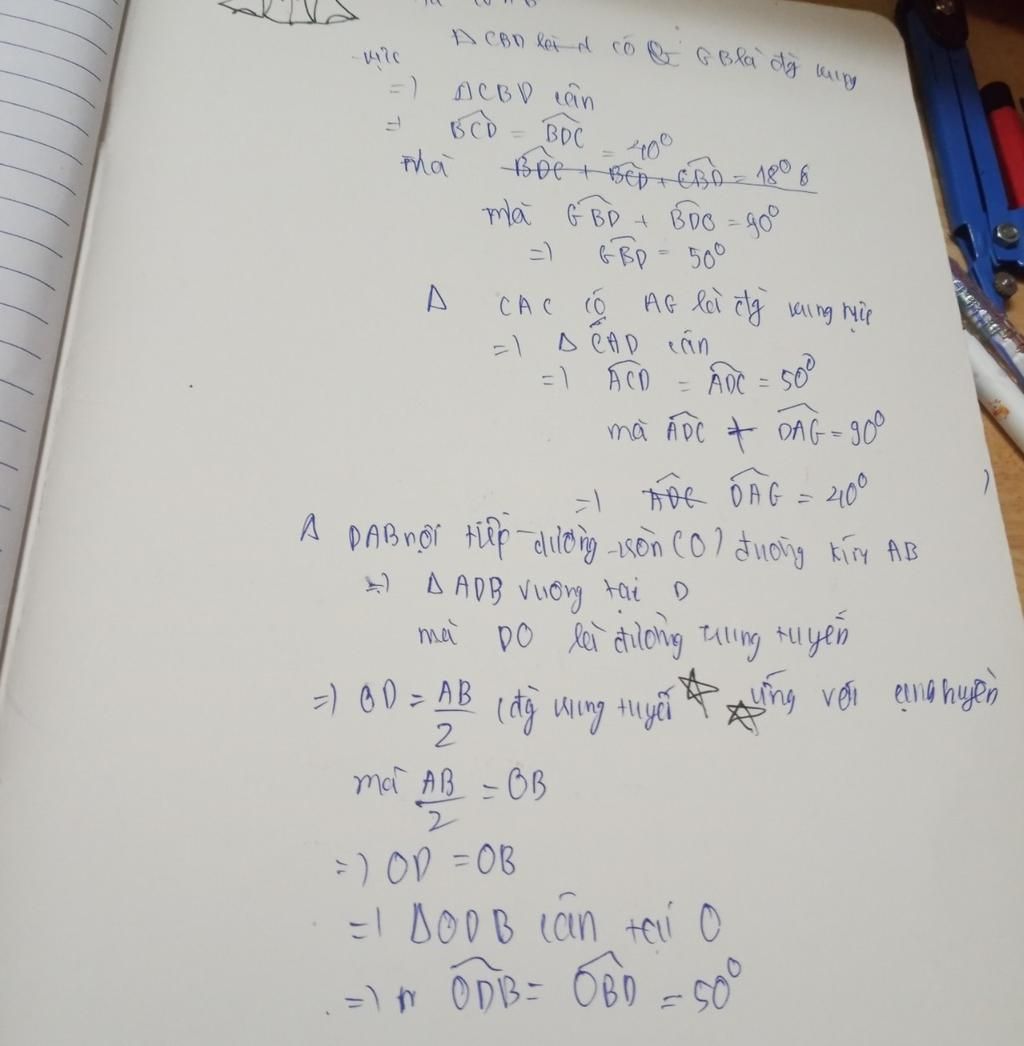 Δ CBD là d có GB là đg trung
trực
=) ΔCBD cân
=) BCD = BDC = 40⁰
mà BDC + BCD + CBD = 18⁰
mà GBD + BDG = 90⁰
=) GBD = 50⁰
Δ CAC có AG là đg trung trực
=) Δ CAD cân
=) ACD = ADC = 50⁰
mà ADC + DAG = 90⁰
=) ADC DAG = 40⁰
Δ DAB nội tiếp đường tròn (O) đường kính AB
=) Δ ADB vuông tại D
mà DO là đường trung tuyến
=) OD = AB/2 (đg trung tuyến ứng với cạng huyền
mà AB/2 = OB
=) OD = OB
=) ΔODB cân tại O
=) ODB = OBD = 50⁰